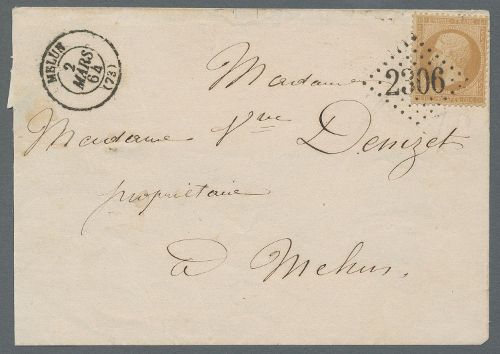 MELUN
2
MARS
64
(73)
EMPIRE FRANC
2306
Madame
Madame Vve Denizet
propriétaire
à Melun.